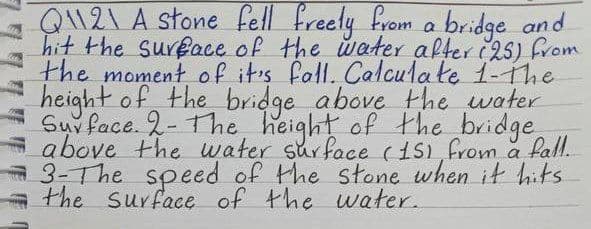 Q\121 A stone fell freely from a bridge and
hit the surface of the water after (2S) from
the moment of it's fall. Calculate 1-The
height of the bridge above the water
Surface. 2- The height of the bridge
above the water surface (1S) from a fall.
3-The speed of the stone when it hits
the surface of the water.